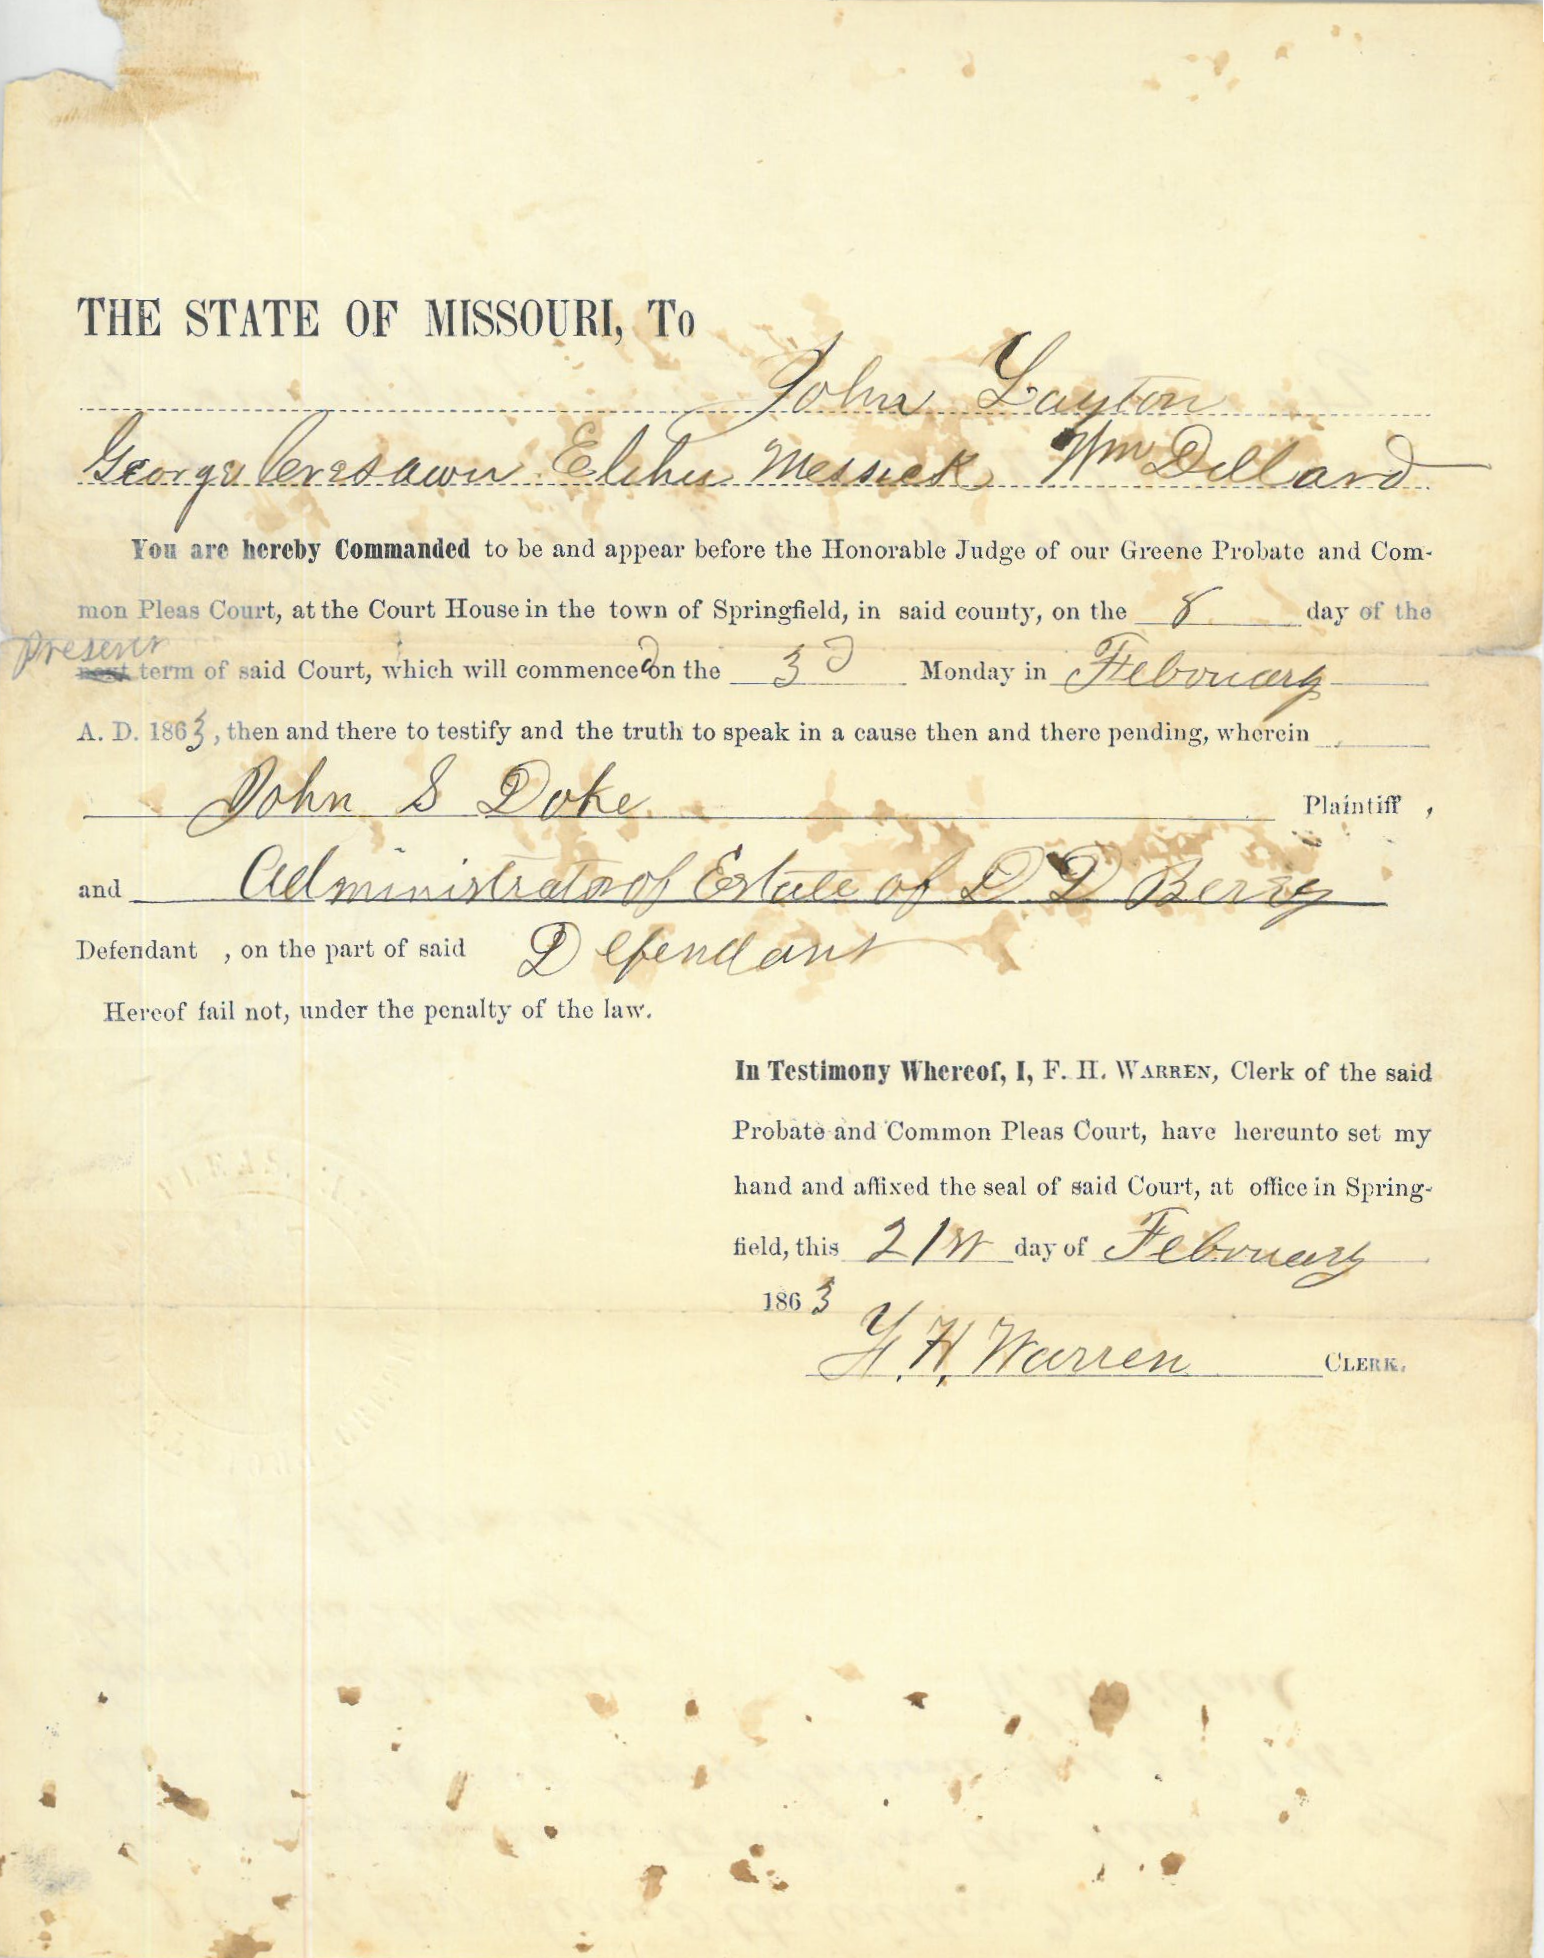 THE STATE OF MISSOURI, To
John Layton
George Elihu Messick, Wm Dillard
You are hereby Commanded to be and appear before the Honorable Judge of our Greene Probate and Com-
mon Pleas Court, at the Court House in the town of Springfield, in said county, on the 8 day of the
present
next term of said Court, which will commenced on the 3d Monday in February
A. D. 1863, then and there to testify and the truth to speak in a cause then and there pending, wherein
John S Doke Plaintiff ,
and Administrator of Estate of D D Berry
Defendant , on the part of said Defendant
Hereof fail not, under the penalty of the law.
In Testimony Whereof, I, F. H. WARREN, Clerk of the said
Probate and Common Pleas Court, have hereunto set my
hand and affixed the seal of said Court, at office in Spring-
field, this 21st day of February
1863
F. H. Warren CLERK.